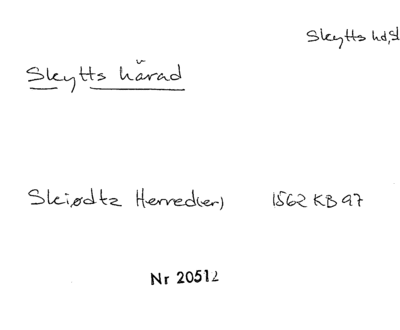 Skytts hd, Sk
Skytts härad
Skiødtz Herred(er) 1562 KB 97
Nr 20512